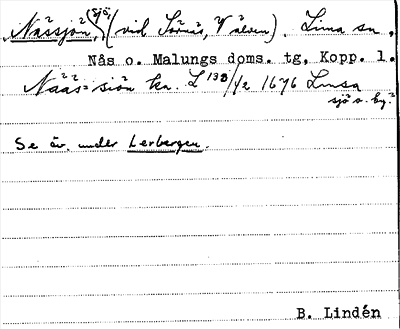 Nässjön, (sjö, (vid Sörnäs, Wälven). Lima sn.,
Nås o. Malungs doms. tg, Kopp. l.
Näås siön ka. L 138/1/2 1676 Lmsa
sjö o. by.?
Se äv. under Lerbergen.
B. Lindén